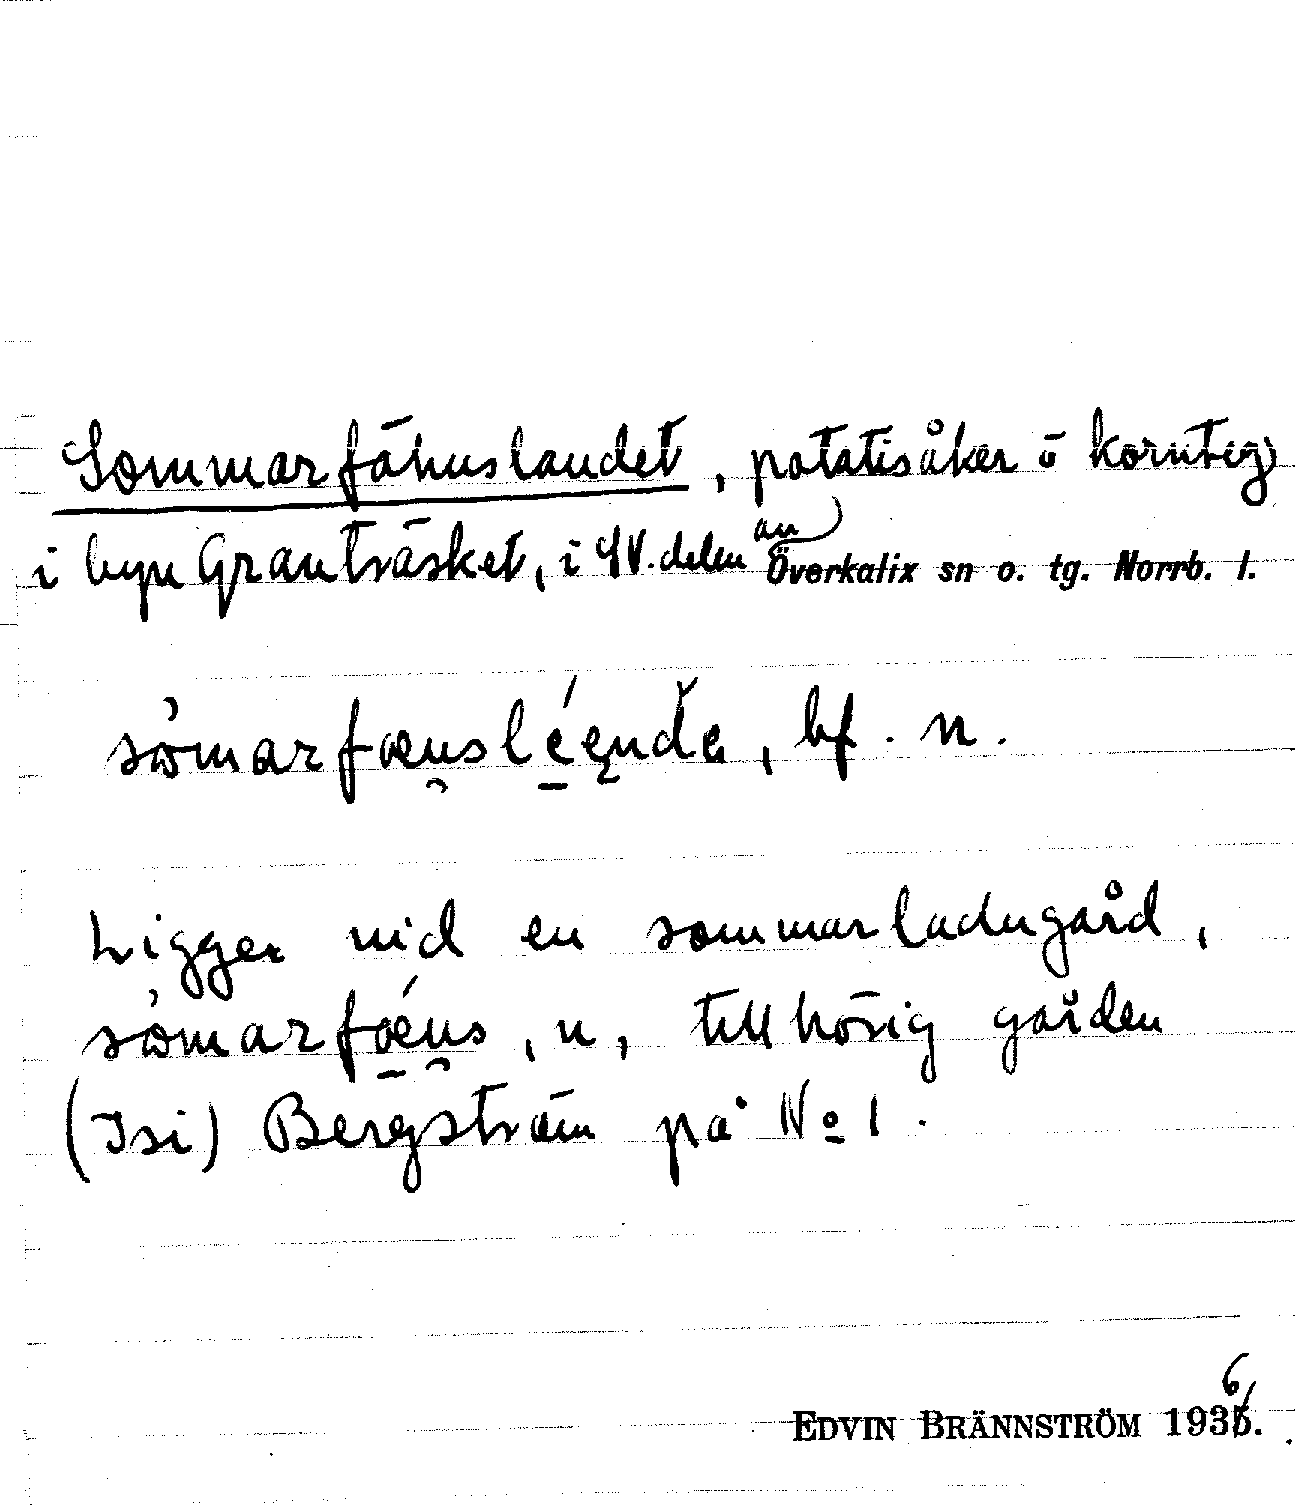 Sommarfähuslandet, potatisåker o korntegar
i byn Granträsket, i SV. delen av Överkalix sn o. tg. Norrb. l.
bf. n.
Ligger vid en sommarladugård,
n, tillhörig gården
(Isi) Bergström på No 1.
EDVIN BRÄNNSTRÖM 1936.